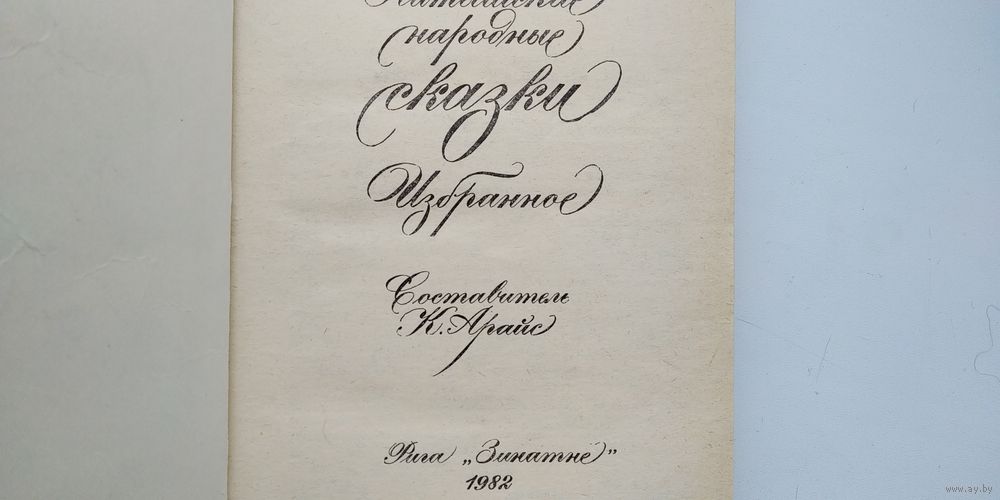 Латышские
народные
сказки
Избранное
Составитель
К. Арайс
Рига „Зинатне”
1982
www.ay.by